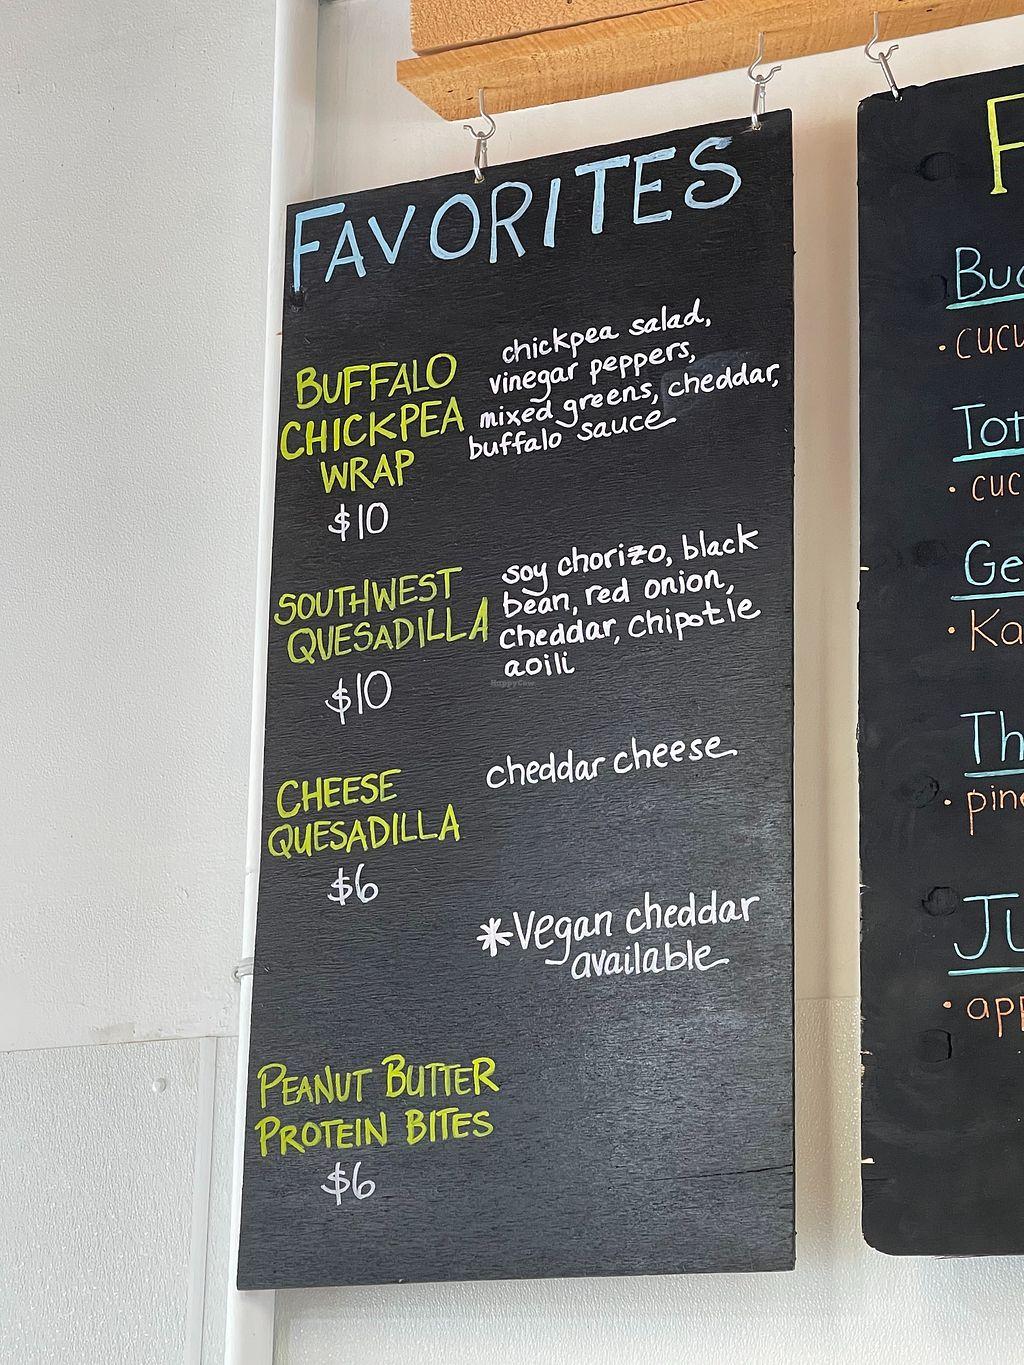 FAVORITES
BUFFALO
CHICKPEA
WRAP
$10
chickpea salad,
vinegar peppers,
mixed greens, cheddar,
buffalo sauce
SOUTHWEST
QUESADILLA
$10
soy chorizo, black
bean, red onion,
cheddar, chipotle
aoili
HappyCow
CHEESE
QUESADILLA
$6
cheddar cheese
*Vegan cheddar
available
PEANUT BUTTER
PROTEIN BITES
$6